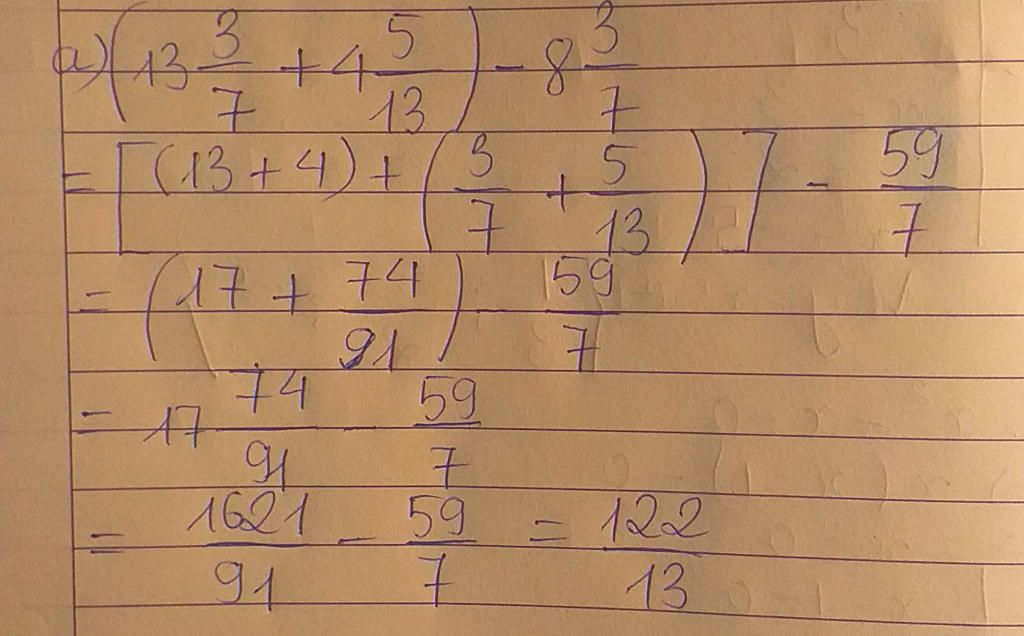 a) (13 3/7 + 4 5/13) - 8 3/7
= [(13 + 4) + (3/7 + 5/13)] - 59/7
= (17 + 74/91) - 59/7
= 17 74/91 - 59/7
= 1621/91 - 59/7 = 122/13